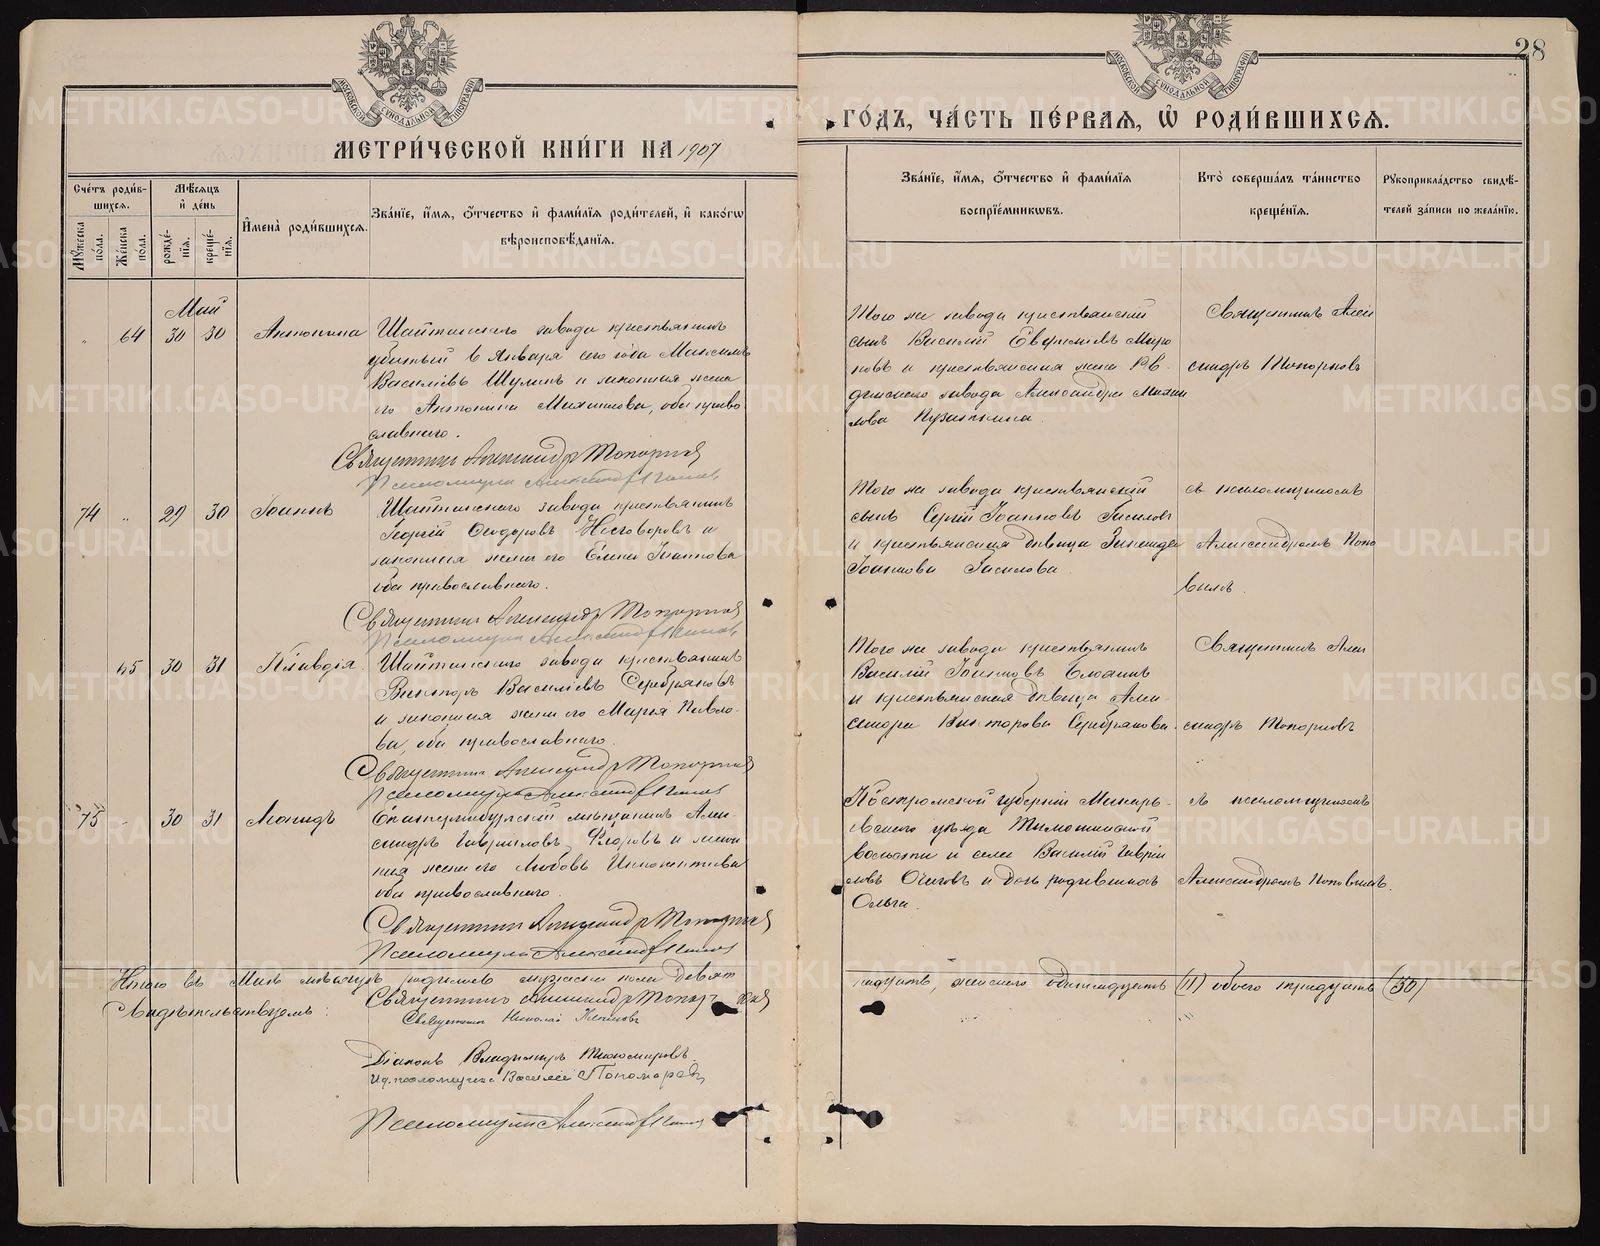 28
МОСКОВСКОЙ СѴНОДАЛЬНОЙ ТИПОГРАФІИ
МОСКОВСКОЙ СѴНОДАЛЬНОЙ ТИПОГРАФІИ
МЕТРИ́ЧЕСКОЙ КНИ́ГИ НА 1907
ГО́ДЪ, ЧА́СТЬ ПЕ́РВАЯ, Ѡ҆ РОДИ́ВШИХСЯ.
Сче́тъ роди́в-
шихся.
Мѣ́сяцъ
и҆ де́нь
И҆мена̀ роди́вшихся.
Зва́нїе, и҆́мя, ѻ҆́тчество и҆ фами́лїя роди́телей, и҆ како́гѡ
вѣроисповѣ́данїя.
Мꙋ́жеска по́ла.
Же́нска по́ла.
рожде́-нїя.
креще́-нїя.
Зва́нїе, и҆́мя, ѻ҆́тчество и҆ фами́лїя
воспрїе́мникѡвъ.
Кто̀ соверша́лъ та́инство
креще́нїя.
Рꙋкоприкла́дство свидѣ́-
телей за́писи по жела́нїю.
Май
" 64 30 30 Антонина Шайтанскаго завода крестьянинъ
убитый в Января сего года Максимъ
Василіевъ Шулинъ и законная жена
его Антонина Михаилова, оба право
славнаго.
Священникъ Александръ Топорковъ
Псаломщикъ Александръ Поповъ
Того же завода крестьянскій
сынъ Василій
и крестьянская жена Рев
динскаго завода Александра Михаи
лова
Священникъ Алек
сандръ Топорковъ
74 " 29 30 Іоаннъ Шайтанскаго завода крестьянинъ
Георгій Ѳеодоровъ и
законная жена его Елена Іоаннова
оба православнаго.
Священникъ Александръ Топорковъ
Псаломщикъ Александръ Поповъ
Того же завода крестьянскій
сынъ Сергій Іоанновъ
и крестьянская дѣвица Зинаида
Іоаннова
съ псаломщикомъ
Александромъ Попо
вымъ.
65 30 31 Клавдія Шайтанскаго завода крестьянинъ
Викторъ Василіевъ Серебряковъ
и законная жена его Марія Павло-
ва, оба православнаго.
Священникъ Александръ Топорковъ
Псаломщикъ Александръ Поповъ
Того же завода крестьянинъ
Василій Іоанновъ
и крестьянская дѣвица Алек-
сандра Викторова Серебрякова.
Священникъ Алек
сандръ Топорковъ
75 " 30 31 Леонидъ Екатеринбургскій мѣщанинъ Алек-
сандръ Гавріиловъ и закон
ная жена его Любовь Иннокентіева
оба православнаго.
Священникъ Александръ Топорковъ
Псаломщикъ Александръ Поповъ
Костромской губерніи Макарь-
евскаго уѣзда
волости и села Василій Гаврі
ловъ и дочь
Ольга.
съ псаломщикомъ
Александромъ Поповымъ.
Итого въ Маѣ мѣсяцѣ родилось мужеска пола девят
надцать, женскаго одиннадцать (11) обоего тридцать (30)
Свидѣтельствуемъ:
Священникъ Александръ Топорковъ
Священникъ Николай
Діаконъ Владиміръ Тихомировъ.
И.д. псаломщика Василій Пономаревъ
Псаломщикъ Александръ Поповъ
METRIKI.GASO-URAL.RU